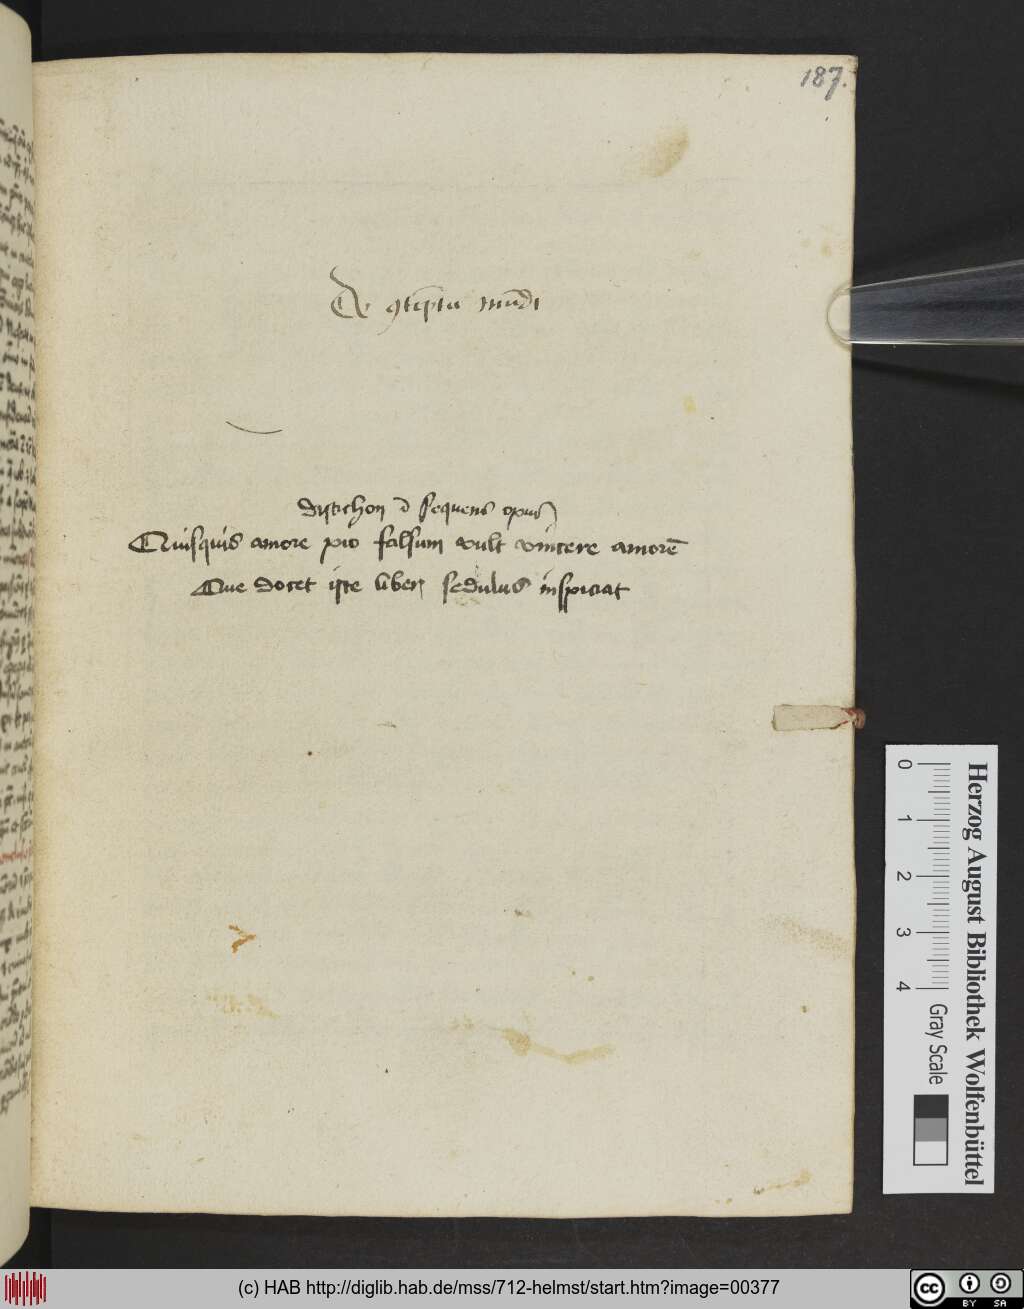 187.
De ꝯtēptu mūdi
distichon ī sequens opus
Quisquis amore pio falsum vult vincere amorē
Que docet iste liber sedulus inspiciat
0 1 2 3 4
Gray Scale
Herzog August Bibliothek Wolfenbüttel
(c) HAB http://diglib.hab.de/mss/712-helmst/start.htm?image=00377
cc BY SA